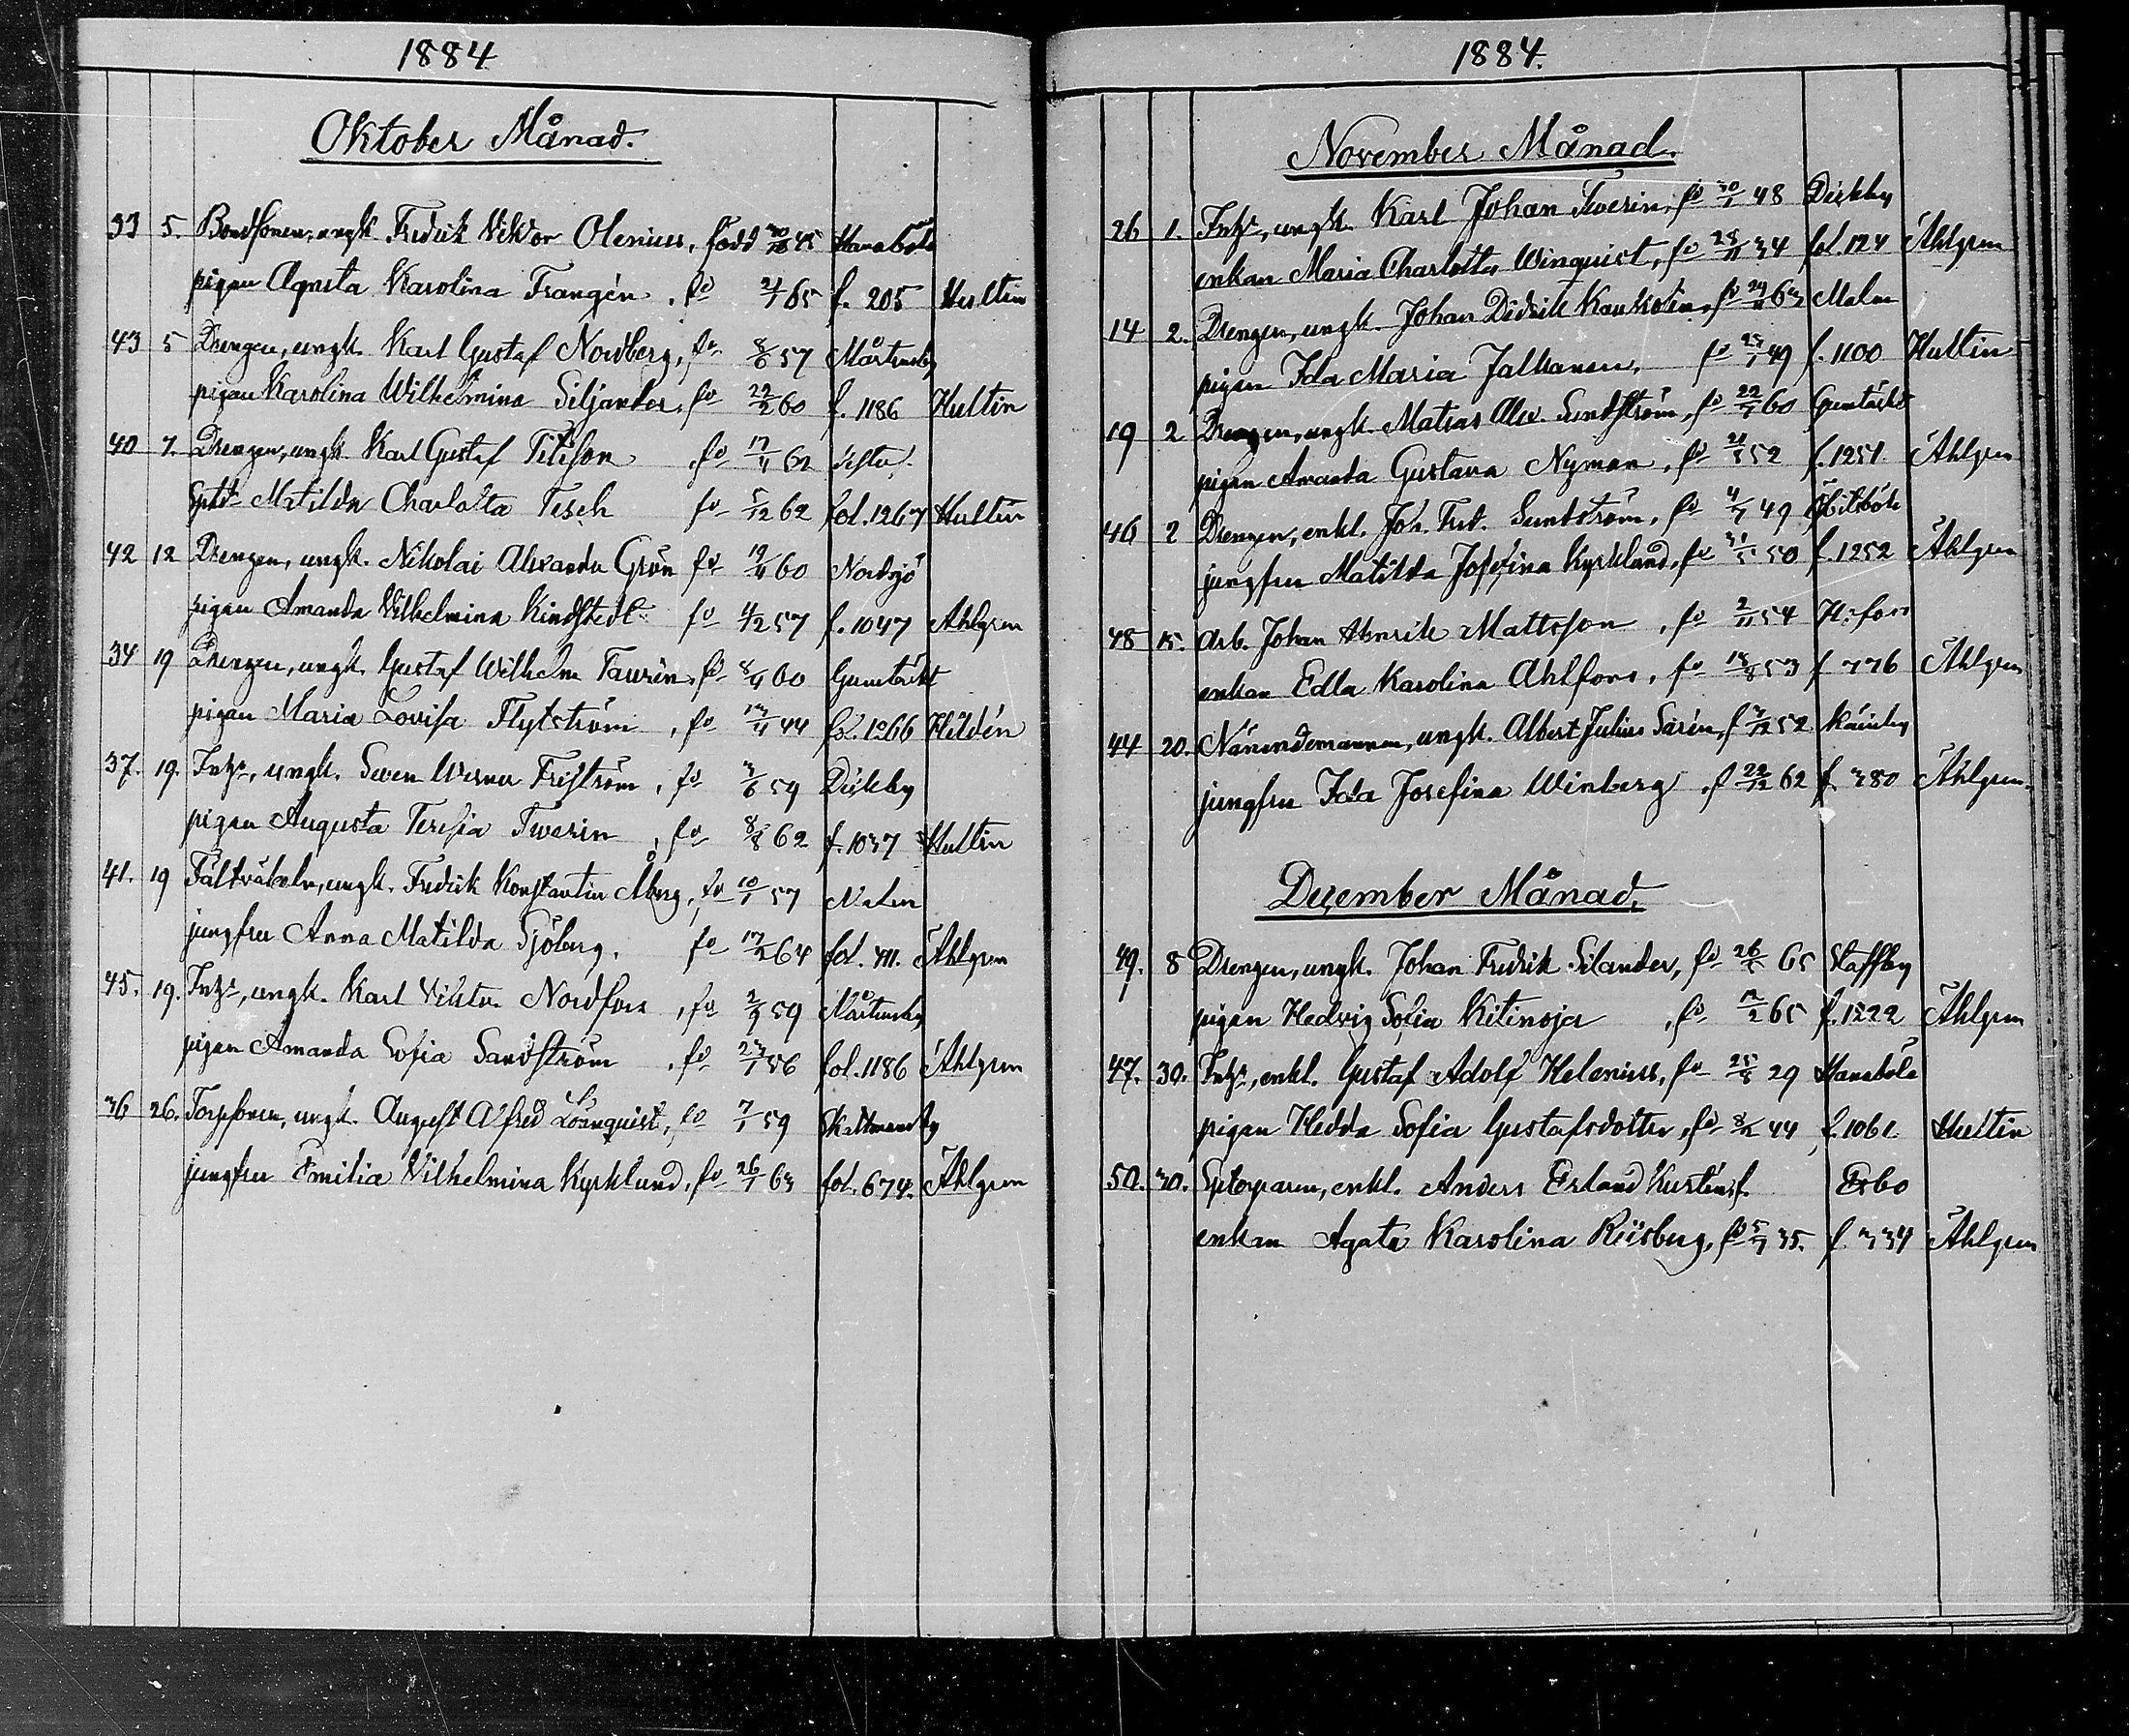 1884
Oktober Månad.
33 5. Bondsonen, ungk. Fredrik Viktor Olenius, född 45 Hanaböle
pigan Agneta Karolina Frangén, fd 65 f. 205 Hultin
43 5 Drengen, ungk. Karl Gustaf Nordberg, fd 8/6 57 Mårtensby
pigan Karolina Wilhelmina Siljander, fd 22/2 60 f. 1186 Hultin
40 7. Drengen, ungk. Karl Gustaf fd 17/11 62
Matilda Charlotta Tesch fd 5/12 62 fol. 1267 Hultin
42 12 Drengen, ungk. Nikolai Alexander Grön fd 60 Nordsjö
pigan Amanda Vilhelmina Kindstedt fd 57 f. 1047 Ahlgren
34 19 Drengen, ungk. Gustaf Wilhelm Taurén, fd 8/4 60 Gumtäkt
pigan Maria Lovisa Flytström, fd 44 fol. 1266 Hildén
37. 19. Inhs, ungk. Sven Werner Friström, fd 3/6 59 Dickby
pigan Augusta Teresia Twerin, fd 8/8 62 f. 1037 Hultin
41. 19 ungk. Fredrik Konstantin Åberg, fd 10/1 57 Malm
jungfru Anna Matilda Sjöberg, fd 17/2 64 fol. Åhlgren
45. 19. Inhs, ungk. Karl Viktor Nordfors, fd 2/9 59 Mårtensby
pigan Amanda Sofia Sandström, fd 23/1 56 fol. 1186 Åhlgren
36 26. Torpsonen, ungk. August Alfred Lönnquist, fd 7/1 59 Skattmansby
jungfru Emilia Vilhelmina Kyrklund, fd 26/1 63 fol. 674. Åhlgren
1884.
November Månad.
26 1. Inhs, ungk. Karl Johan Twerin, fd 30/1 48 Dickby
enkan Maria Charlotta Winquist, fd 28/11 34 fol. 124 Åhlgren
14 2. Drengen, ungk. Johan Didrik fd 63 Malm
pigan Ida Maria Jalkanen, fd 49 f. 1100 Hultin
19 2 Drengen, ungk. Matias Alex. Sundström, fd 22/7 60 Gumtäkt
pigan Amanda Gustava Nyman, fd 52 f. 1251 Åhlgren
46 2 Drengen, enkl. Joh. Fred. Sundström, fd 4/7 49
jungfru Matilda Josefina Kyrklund, fd 50 f. 1252 Åhlgren
48 15. Arb. Johan Henrik Mattsson, fd 2/11 54 H:fors
enkan Edla Karolina Ahlfors, fd 18/8 53 f 776 Åhlgren
44 20. Nämndemannen, ungk. Albert Julius Sarén, f 3/12 52
jungfru Ida Josefina Winberg, f 22/12 62 f. 380 Åhlgren.
December Månad.
49. 8 Drengen, ungk. Johan Fredrik Silander, fd 65 Staffby
pigan Hedvig Sofia Kitinoja, fd 12/2 65 f. 1222 Åhlgren
47. 30. Inhs, enkl. Gustaf Adolf Helenius, fd 25/8 29 Hanaböle
pigan Hedda Sofia Gustafsdotter, fd 44 f. 1061 Hultin
50. 30. enkl. Anders Erland f. Esbo
enkan Agata Karolina Riisberg, fd 5/7 35. f. 334 Åhlgren